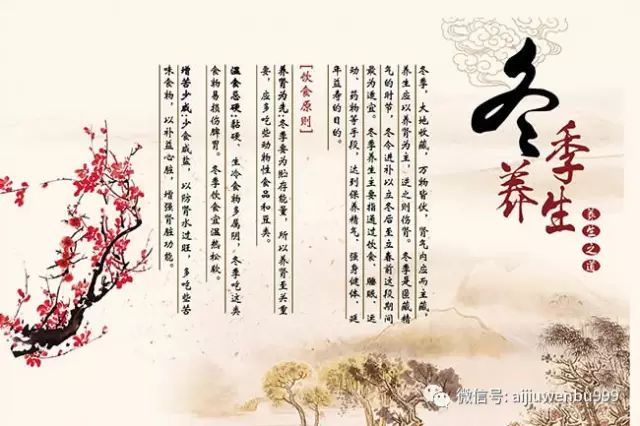 冬季养生
养生之道
冬季，大地收藏，万物皆伏，肾气内应而主藏，
养生应以养肾为主，逆之则伤肾。冬季是匿藏精
气的时节，冬令进补以立冬后至立春前这段期间
最为适宜。冬季养生主要指通过饮食、睡眠、运
动、药物等手段，达到保养精气、强身健体、延
年益寿的目的。
[饮食原则]
养肾为先：冬季要为贮存能量，所以养肾至关重
要，应多吃些动物性食品和豆类。
温食忌硬：黏硬、生冷食物多属阴，冬季吃这类
食物易损伤脾胃。冬季饮食宜温热松软。
增苦少咸：少食咸盐，以防肾水过旺，多吃些苦
味食物，以补益心脏，增强肾脏功能。
微信号: aijiuwenbu999